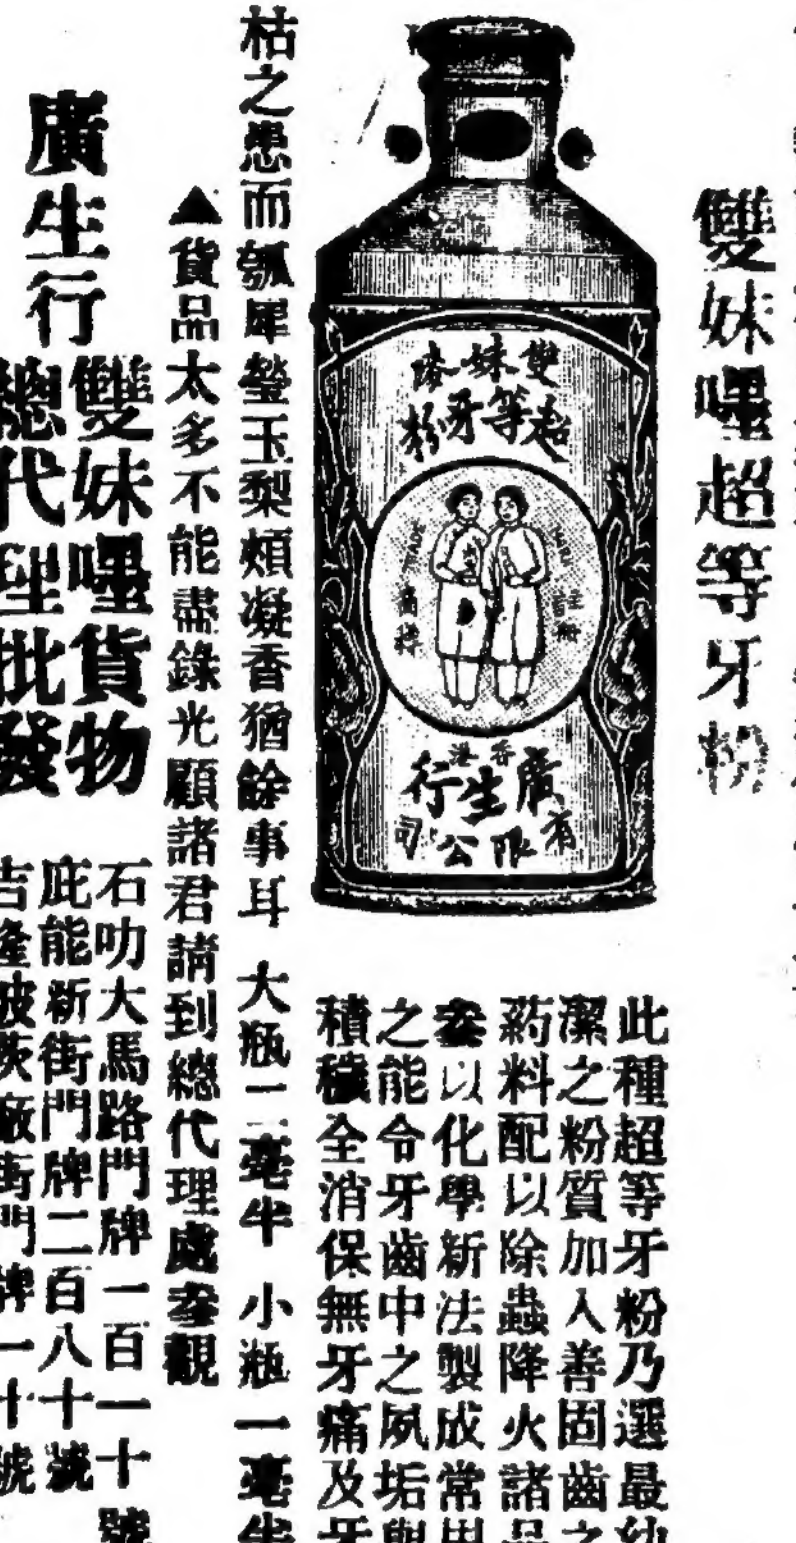 雙妹嘜超等牙粉
雙妹嘜
超等牙粉
TRADE
商標
註冊
香港
廣生行
有限公司
此種超等牙粉乃選最
潔之粉質加入善固齒之
葯料配以除蟲降火諸品
叅以化學新法製成常用
之能令牙齒中之夙垢與
積穢全消保無牙痛及牙
枯之患而瓠犀瑩玉梨頰凝香猶餘事耳 大瓶二毫半 小瓶一毫半
▲貨品太多不能盡錄光顧諸君請到總代理處叅觀
廣生行
雙妹嘜貨物
總代理批發
石叻大馬路門牌一百一十號
庇能新街門牌二百八十號
吉隆坡茨廠街門牌一十號